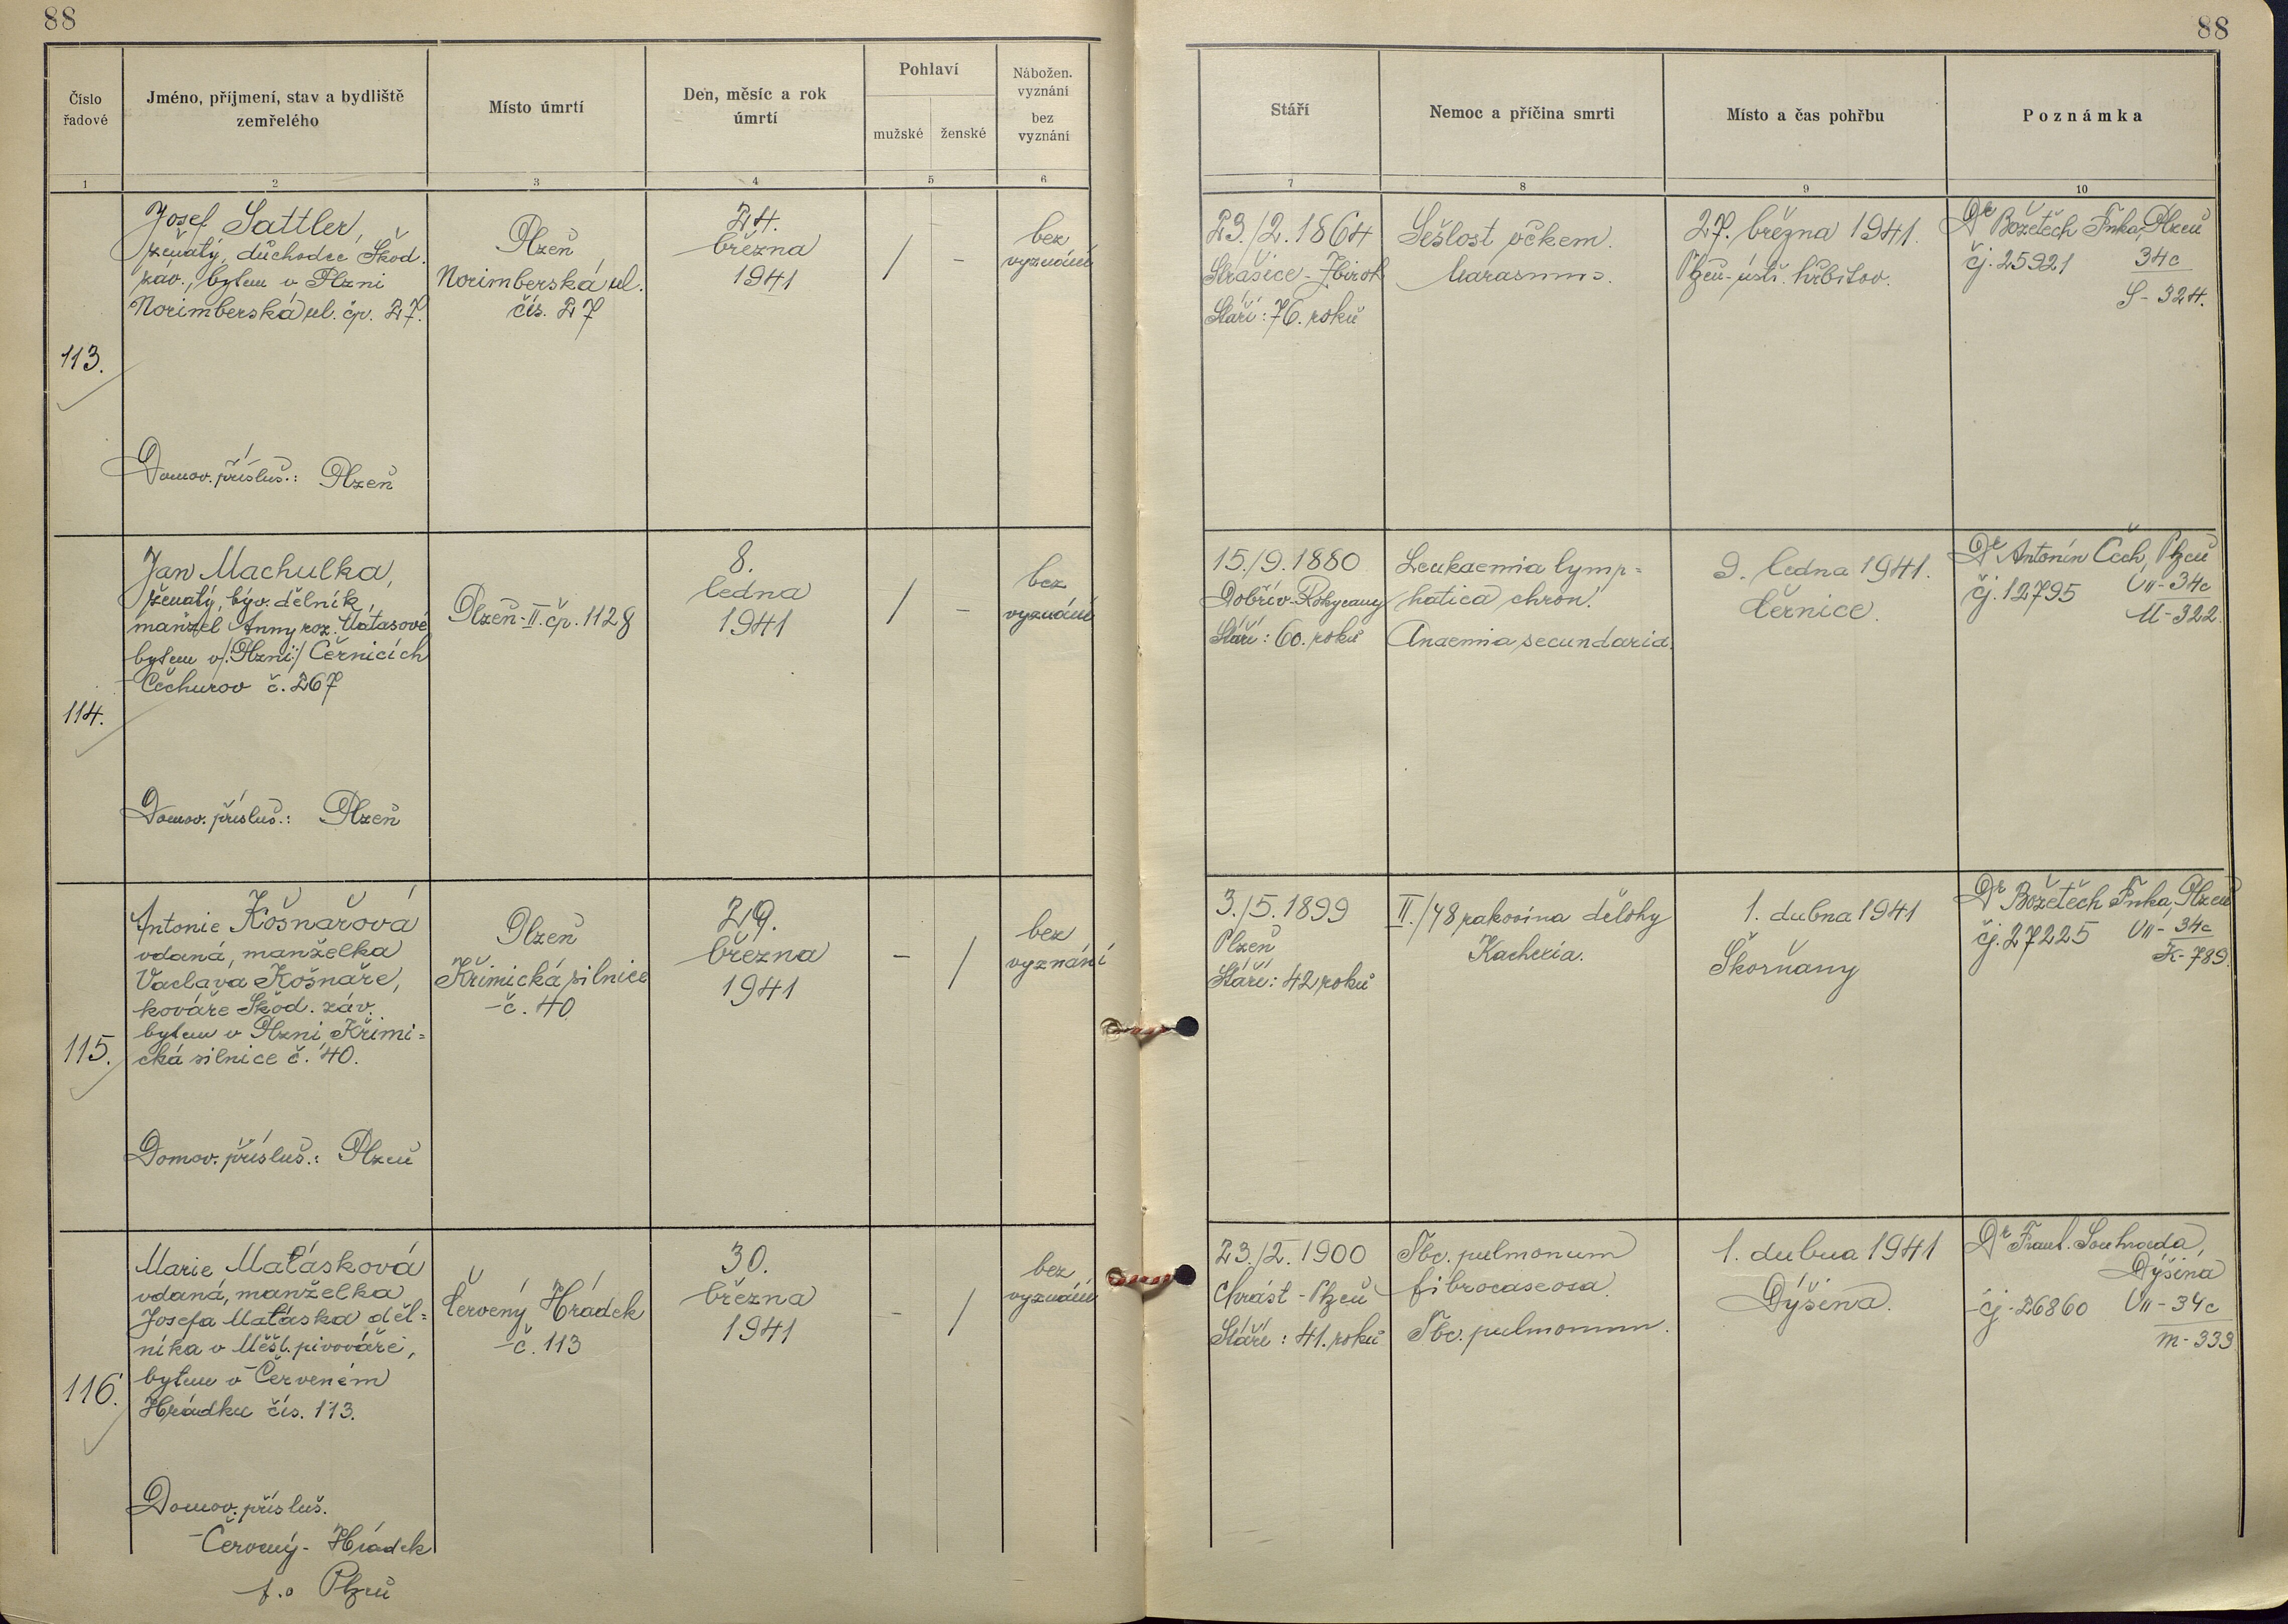 88
88
Číslo řadové
Jméno, příjmení, stav a bydliště
zemřelého
Místo úmrtí
Den, měsíc a rok
úmrtí
Pohlaví
mužské
ženské
Nábožen.
vyznání
bez
vyznání
Stáří
Nemoc a příčina smrti
Místo a čas pohřbu
Poznámka
1
2
3
4
5
6
7
8
9
10
113.
Josef Sattler,
ženatý, důchodce Škod.
záv., bytem v Plzni
Norimberská ul. čp. 27.
Domov. přísluš.: Plzeň
Plzeň
Norimberská ul.
čís. 27
24.
března
1941
/
-
bez
vyznání
23./2.1864
Strašice - Zbiroh
Stáří: 76. roků
Sešlost věkem.
Marasmus.
27. března 1941.
Plzeň-ústř. hřbitov.
Dr Božetěch Trnka, Plzeň
čj. 25921
34c
S - 324.
114.
Jan Machulka,
ženatý, býv. dělník
manžel Anny roz. Matasové
bytem v /:Plzni:/ Černicích
Čechurov č. 267
Domov. přísluš.: Plzeň
Plzeň-II. čp. 1128
8.
ledna
1941
/
-
bez
vyznání
15./9.1880
Dobřív-Rokycany
Stáří: 60. roků
Leukaemia lymp=
hatica chron.
Anaemia secundaria.
9. ledna 1941.
Černice.
Dr Antonín Čech, Plzeň
čj. 12795
VII - 34c
M - 322.
115.
Antonie Košnařová
vdaná, manželka
Vaclava Košnaře,
kováře Škod. záv.
bytem v Plzni, Křimi=
cká silnice č. 40.
Domov. přísluš.: Plzeň
Plzeň
Křimická silnice
č. 40
29.
března
1941
-
/
bez
vyznání
3./5.1899
Plzeň
Stáří: 42 roků
II./48 rakovina dělohy
Kachexia.
1. dubna 1941
Škorňany
Dr Božetěch Trnka, Plzeň
čj. 27225
VII - 34c
K - 789.
116.
Marie Matásková
vdaná, manželka
Josefa Matáska děl=
níka v Měšť. pivováře,
bytem v Červeném
Hrádku čís. 113.
Domov. přísluš.
Červený - Hrádek
p.o Plzeň
Červený Hrádek
č. 113
30.
března
1941
-
/
bez
vyznání
23./2. 1900
Chrást - Plzeň
Stáří: 41. roků
Tbc. pulmonum
fibrocaseosa.
Tbc. pulmonum.
1. dubna 1941
Dýšina.
Dr Frant.
Dýšina
čj. 26860
VII - 34c
m - 333